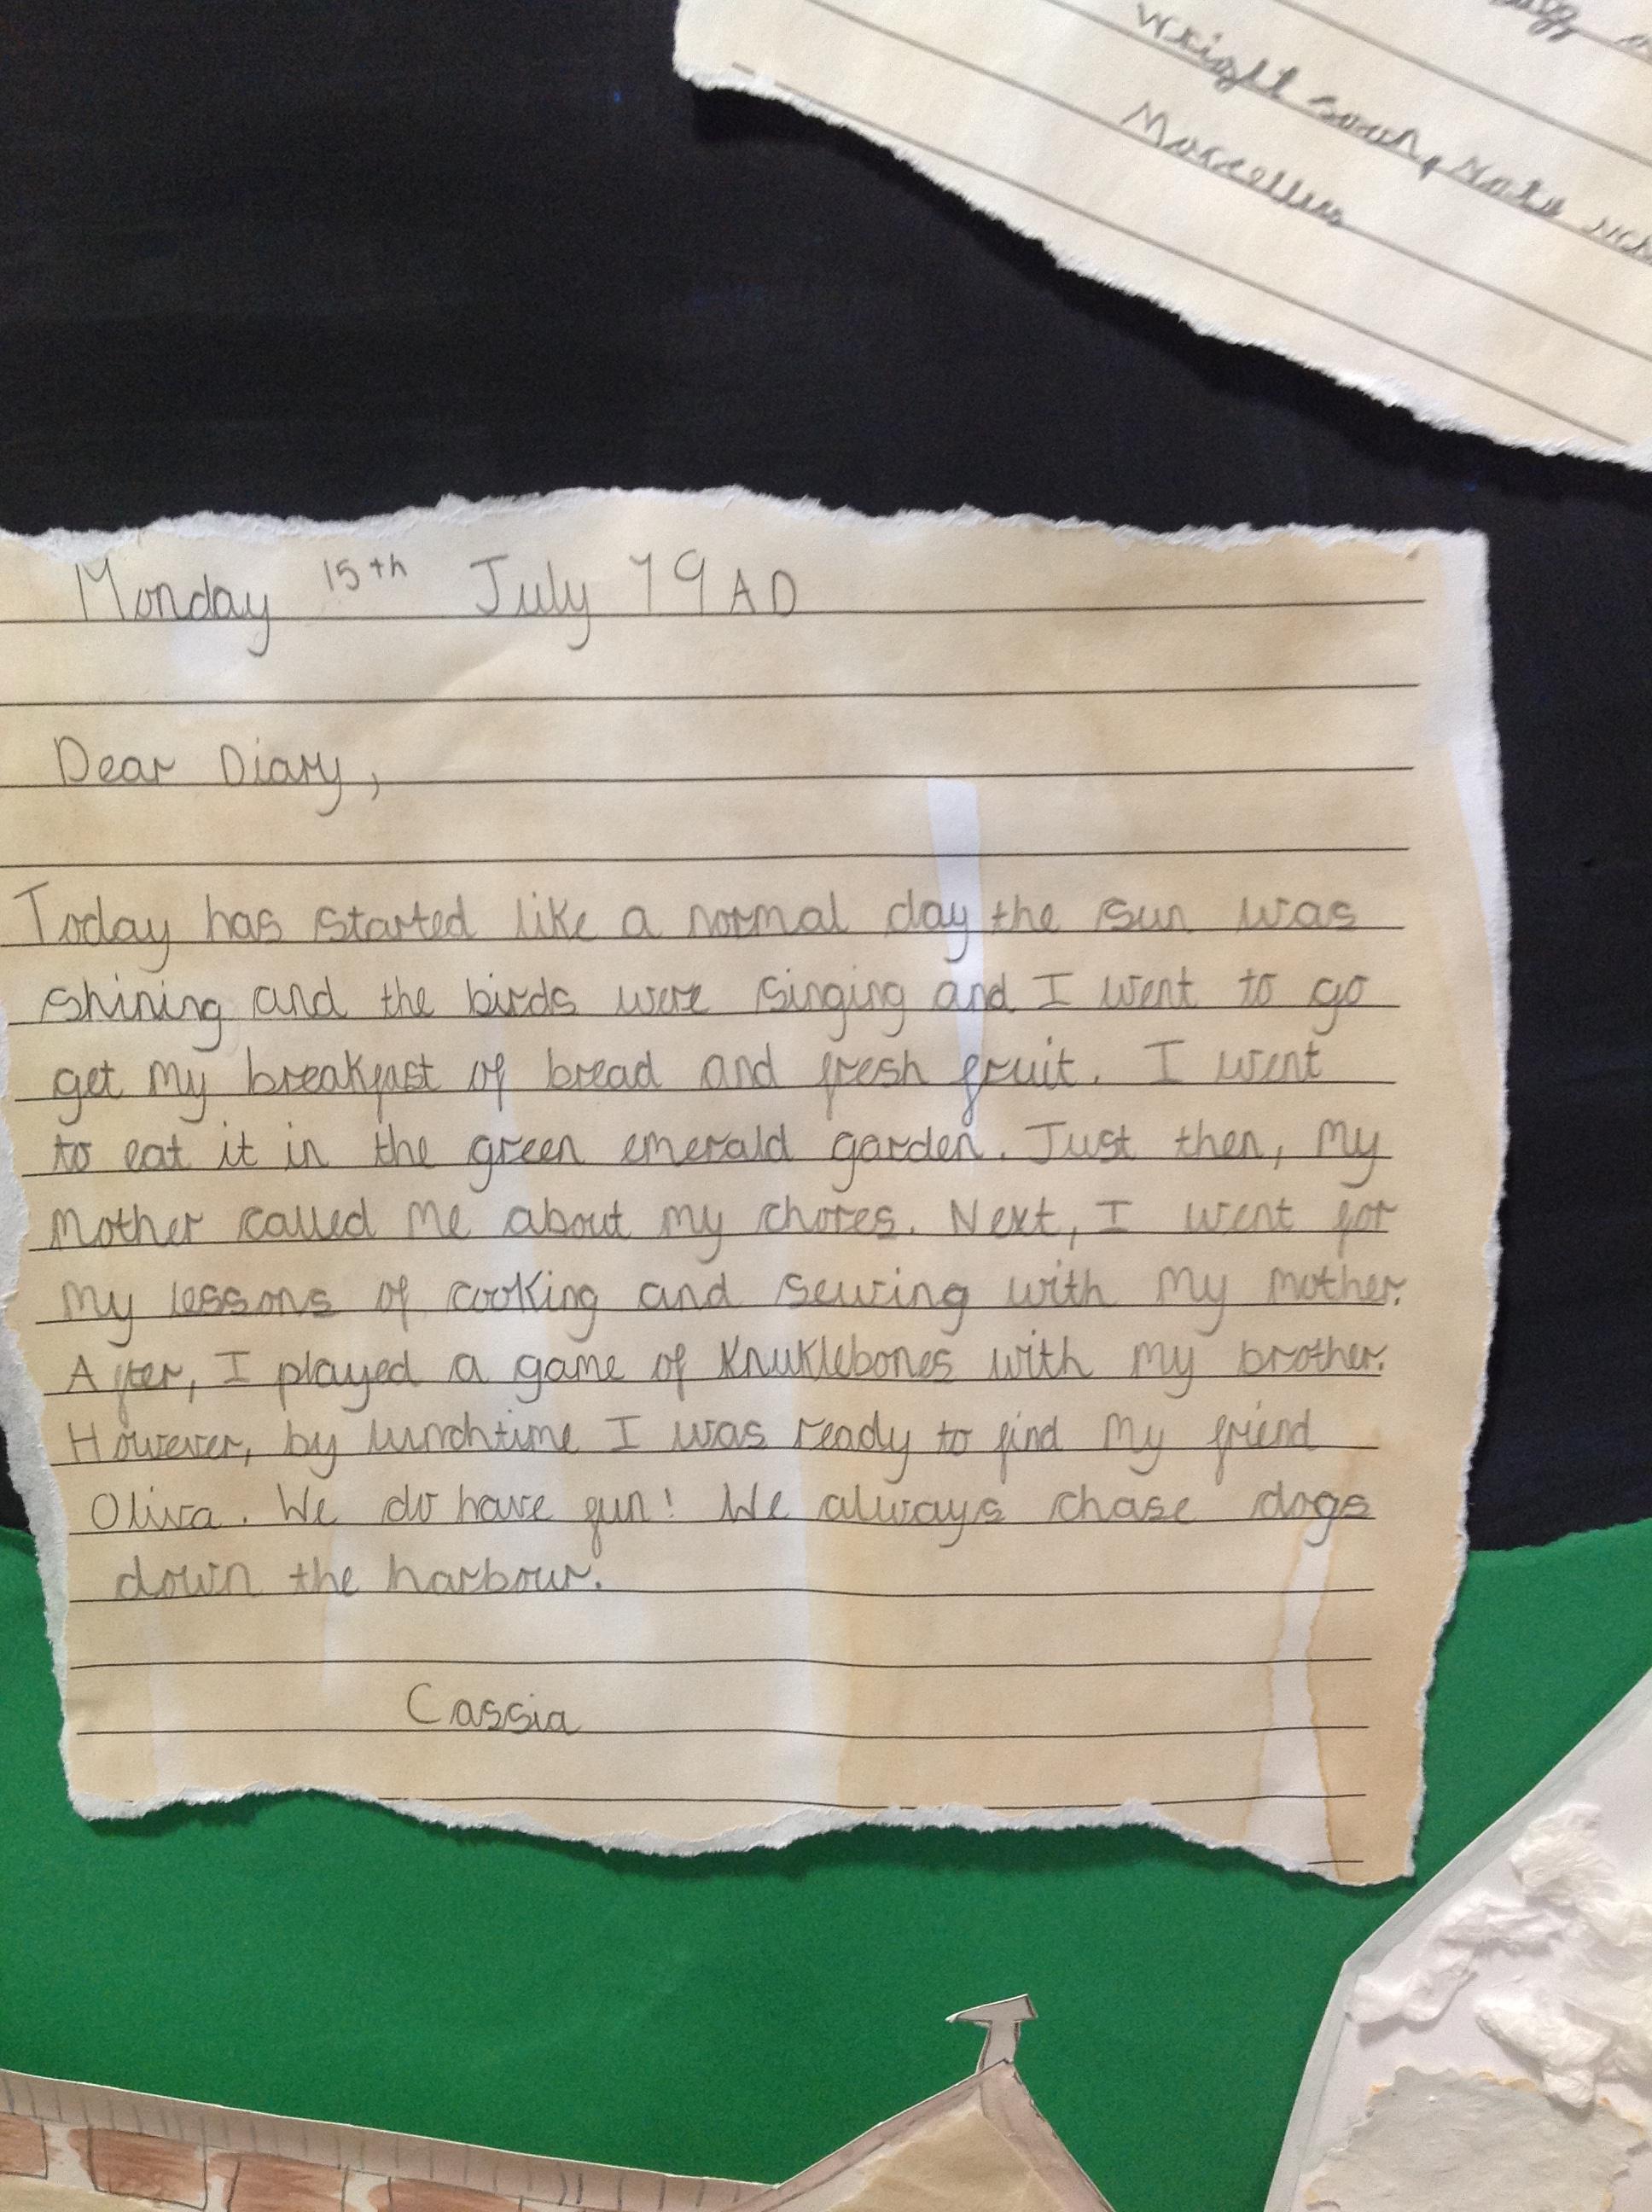 Weight soon,
Marcellus
Monday 15th July 79 AD
Dear Diary,
Today has started like a normal day the sun was
shining and the birds were singing and I went to go
get my breakfast of bread and fresh fruit. I went
to eat it in the green emerald garden. Just then, my
mother called me about my chores. Next, I went for
my lessons of cooking and sewing with my mother.
After, I played a game of Knuklebones with my brother.
However, by lunchtime I was ready to find my friend
Oliva. We do have fun! We always chase dogs
down the harbour.
Cassia